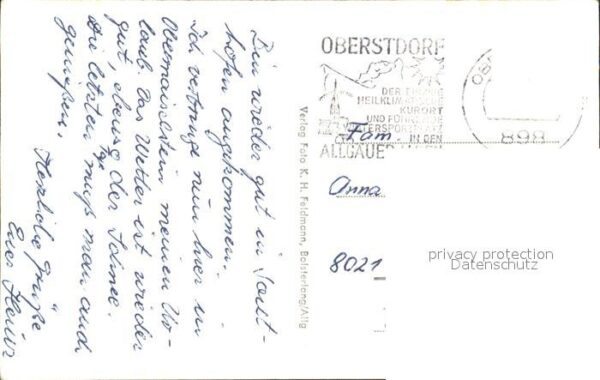 Bin wieder gut in Sont-
hofen angekommen.
Ich verbringe nun hier in
Obermaiselstein meinen Ur-
laub. Das Wetter ist wieder
gut, ebenso der Schnee.
Die letzten Tage muß man auch
genießen.
Herzliche Grüße
Euer Heinz
Verlag Foto K. H. Feldmann, Bolsterlang/Allg
OBERSTDORF
DER
HEILKLIMATISCHE
KURORT
UND
WINTERSPORTPLATZ
IN DEN
ALLGÄUER ALPEN
898
Fam.
Anna
8021
privacy protection
Datenschutz